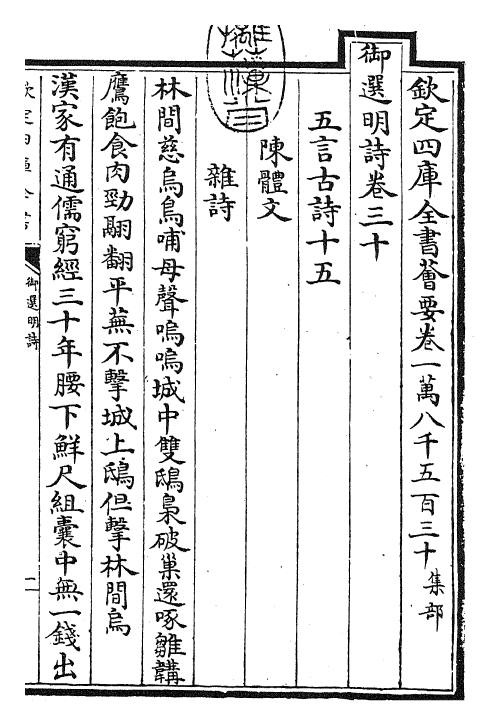 欽定四庫全書薈要卷一萬八千五百三十 集部
御選明詩卷三十
五言古詩十五
陳體文
雜詩
林間慈烏烏哺母聲嗚嗚城中雙鴟梟破巢還啄雛韝
鷹飽食肉勁翮翻平蕪不擊城上鴟但擊林間烏
漢家有通儒窮經三十年腰下鮮尺組囊中無一錢出
御選明詩